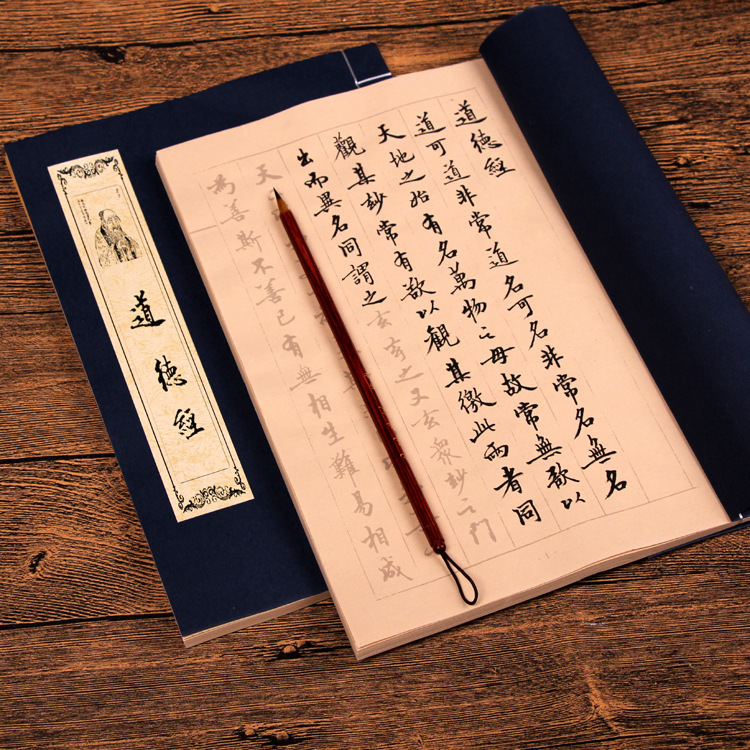 道德經
道可道非常道名可名非常名無名
天地之始有名萬物之母故常無欲以
觀其玅常有欲以觀其徼此兩者同
出而異名同謂之玄玄之又玄眾玅之門
天
為善斯不善已有無相生難易相成
道德經